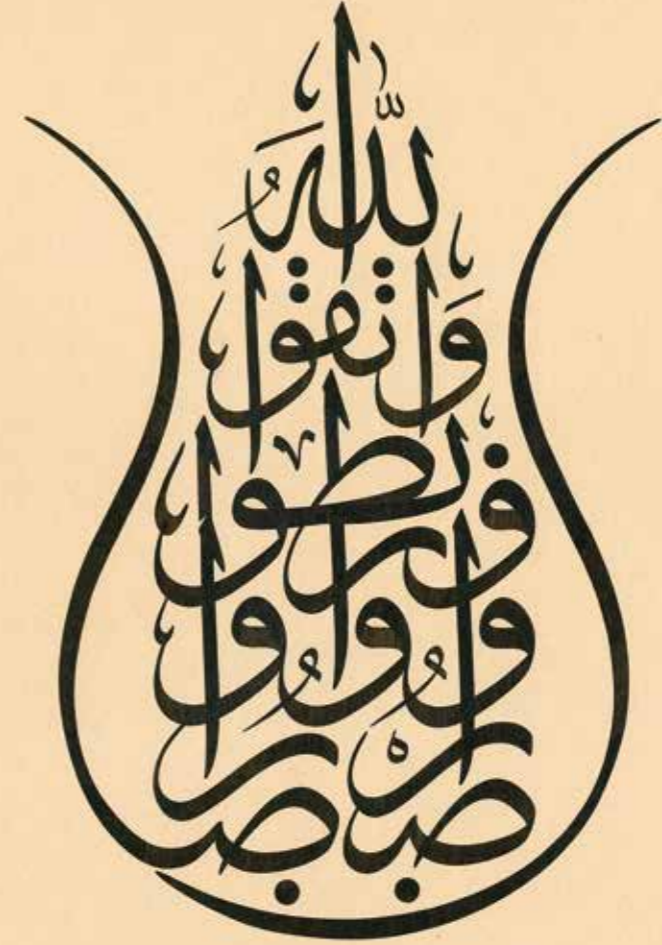 اصبروا وصابروا
ورابطوا
وَاتقوا
اللهَ